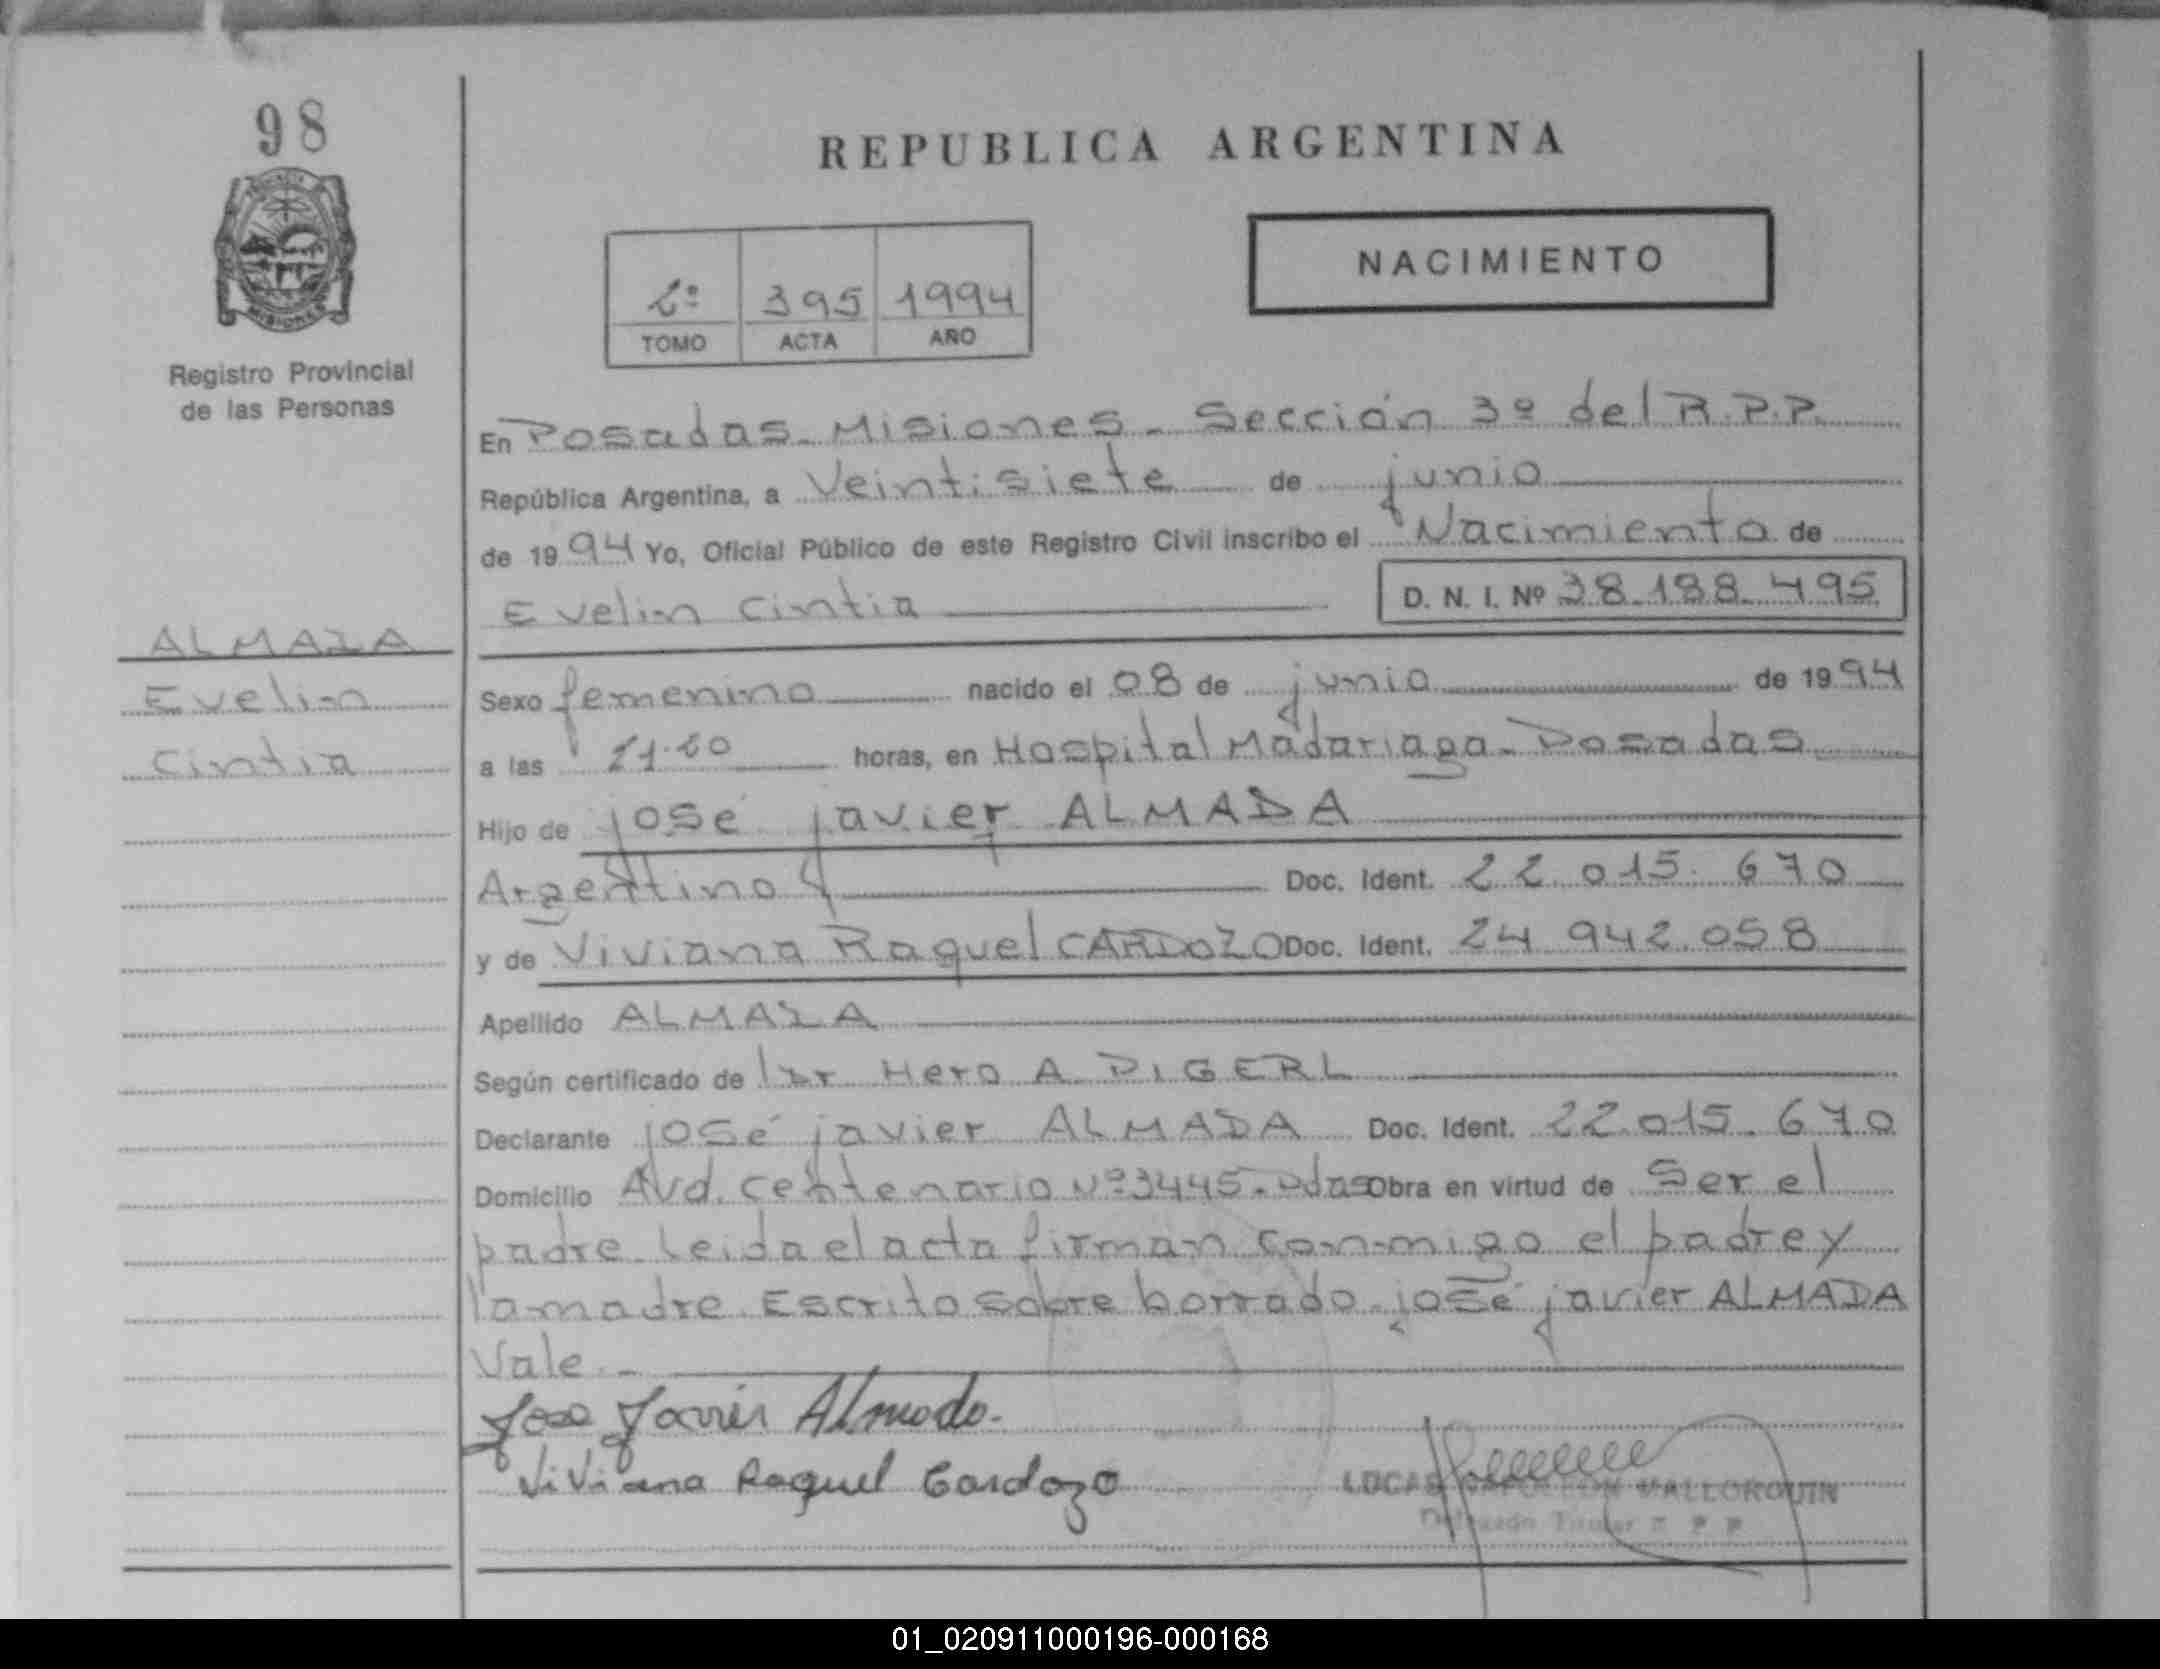 98
PROVINCIA
MISIONES
Registro Provincial
de las Personas
REPUBLICA ARGENTINA
NACIMIENTO
2º 395 1994
TOMO ACTA AÑO
En Posadas - Misiones - Sección 3º del R.P.P.
República Argentina, a Veintisiete de junio
de 1994 Yo, Oficial Público de este Registro Civil inscribo el Nacimiento de
Evelin Cintia D. N. I. Nº 38.188.495
ALMADA
Evelin
Cintia
Sexo femenino nacido el 08 de junio de 1994
a las 21.20 horas, en Hospital Madariaga - Posadas
Hijo de josé javier ALMADA
Argentino Doc. Ident. 22.015.670
y de Viviana Raquel CARDOZO Doc. Ident. 24.942.058
Apellido ALMADA
Según certificado de Dr Hero A DIGERL
Declarante josé javier ALMADA Doc. Ident. 22.015.670
Domicilio Avd. Centenario Nº 3445 - Pdas Obra en virtud de Ser el
padre. Leida el acta firman conmigo el padre y
la madre. Escrito sobre borrado. josé javier ALMADA
Vale. -
Jose Javier Almada.
Viviana Raquel Cardozo
LUCAS NAPOLEON MALLORQUIN
Delegado Titular R P P
01_020911000196-000168